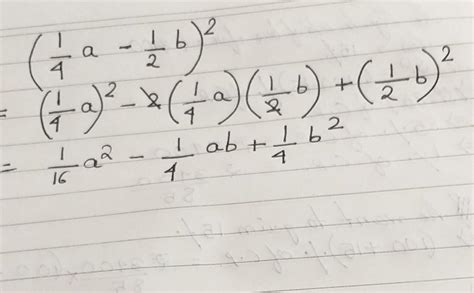 (1/4 a - 1/2 b)²
= (1/4 a)² - 2(1/4 a)(1/2 b) + (1/2 b)²
= 1/16 a² - 1/4 ab + 1/4 b²